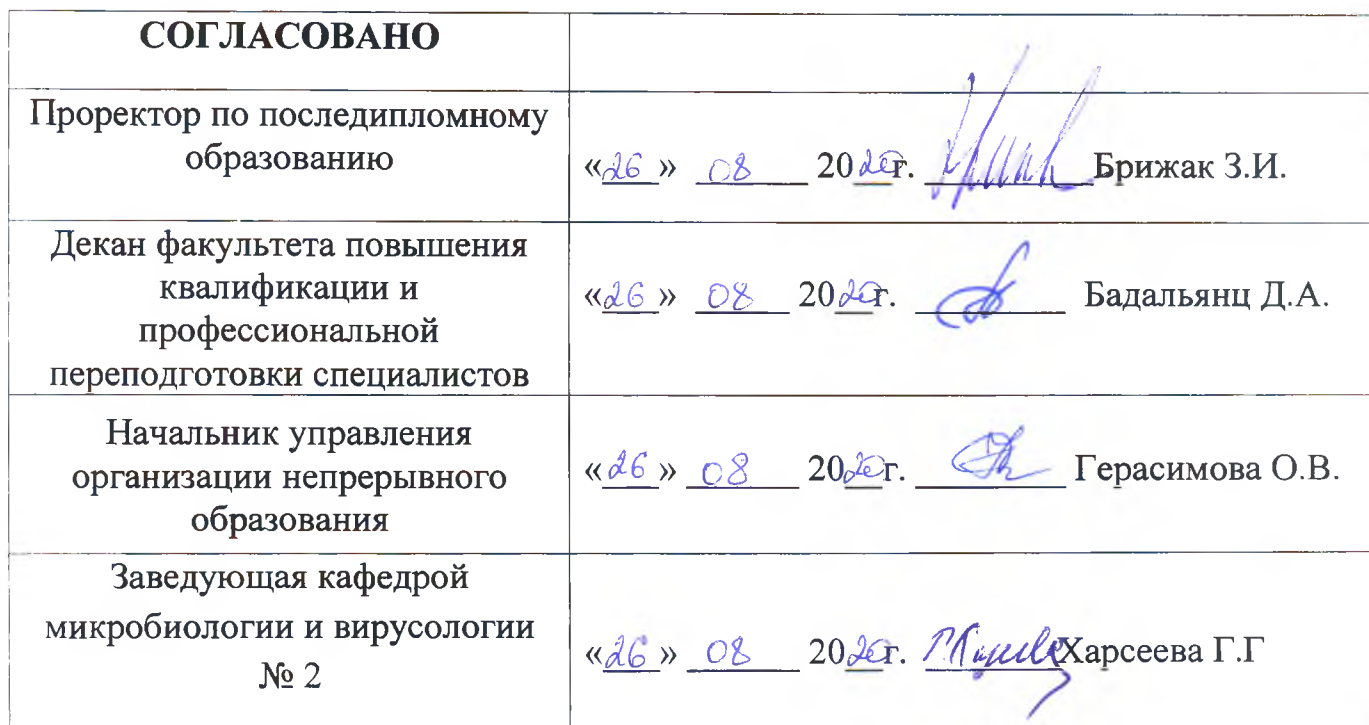 СОГЛАСОВАНО
Проректор по последипломному
образованию
«26» 08 2020г. Брижак З.И.
Декан факультета повышения
квалификации и
профессиональной
переподготовки специалистов
«26» 08 2020г. Бадальянц Д.А.
Начальник управления
организации непрерывного
образования
«26» 08 2020г. Герасимова О.В.
Заведующая кафедрой
микробиологии и вирусологии
№ 2
«26» 08 2020г. Харсеева Г.Г